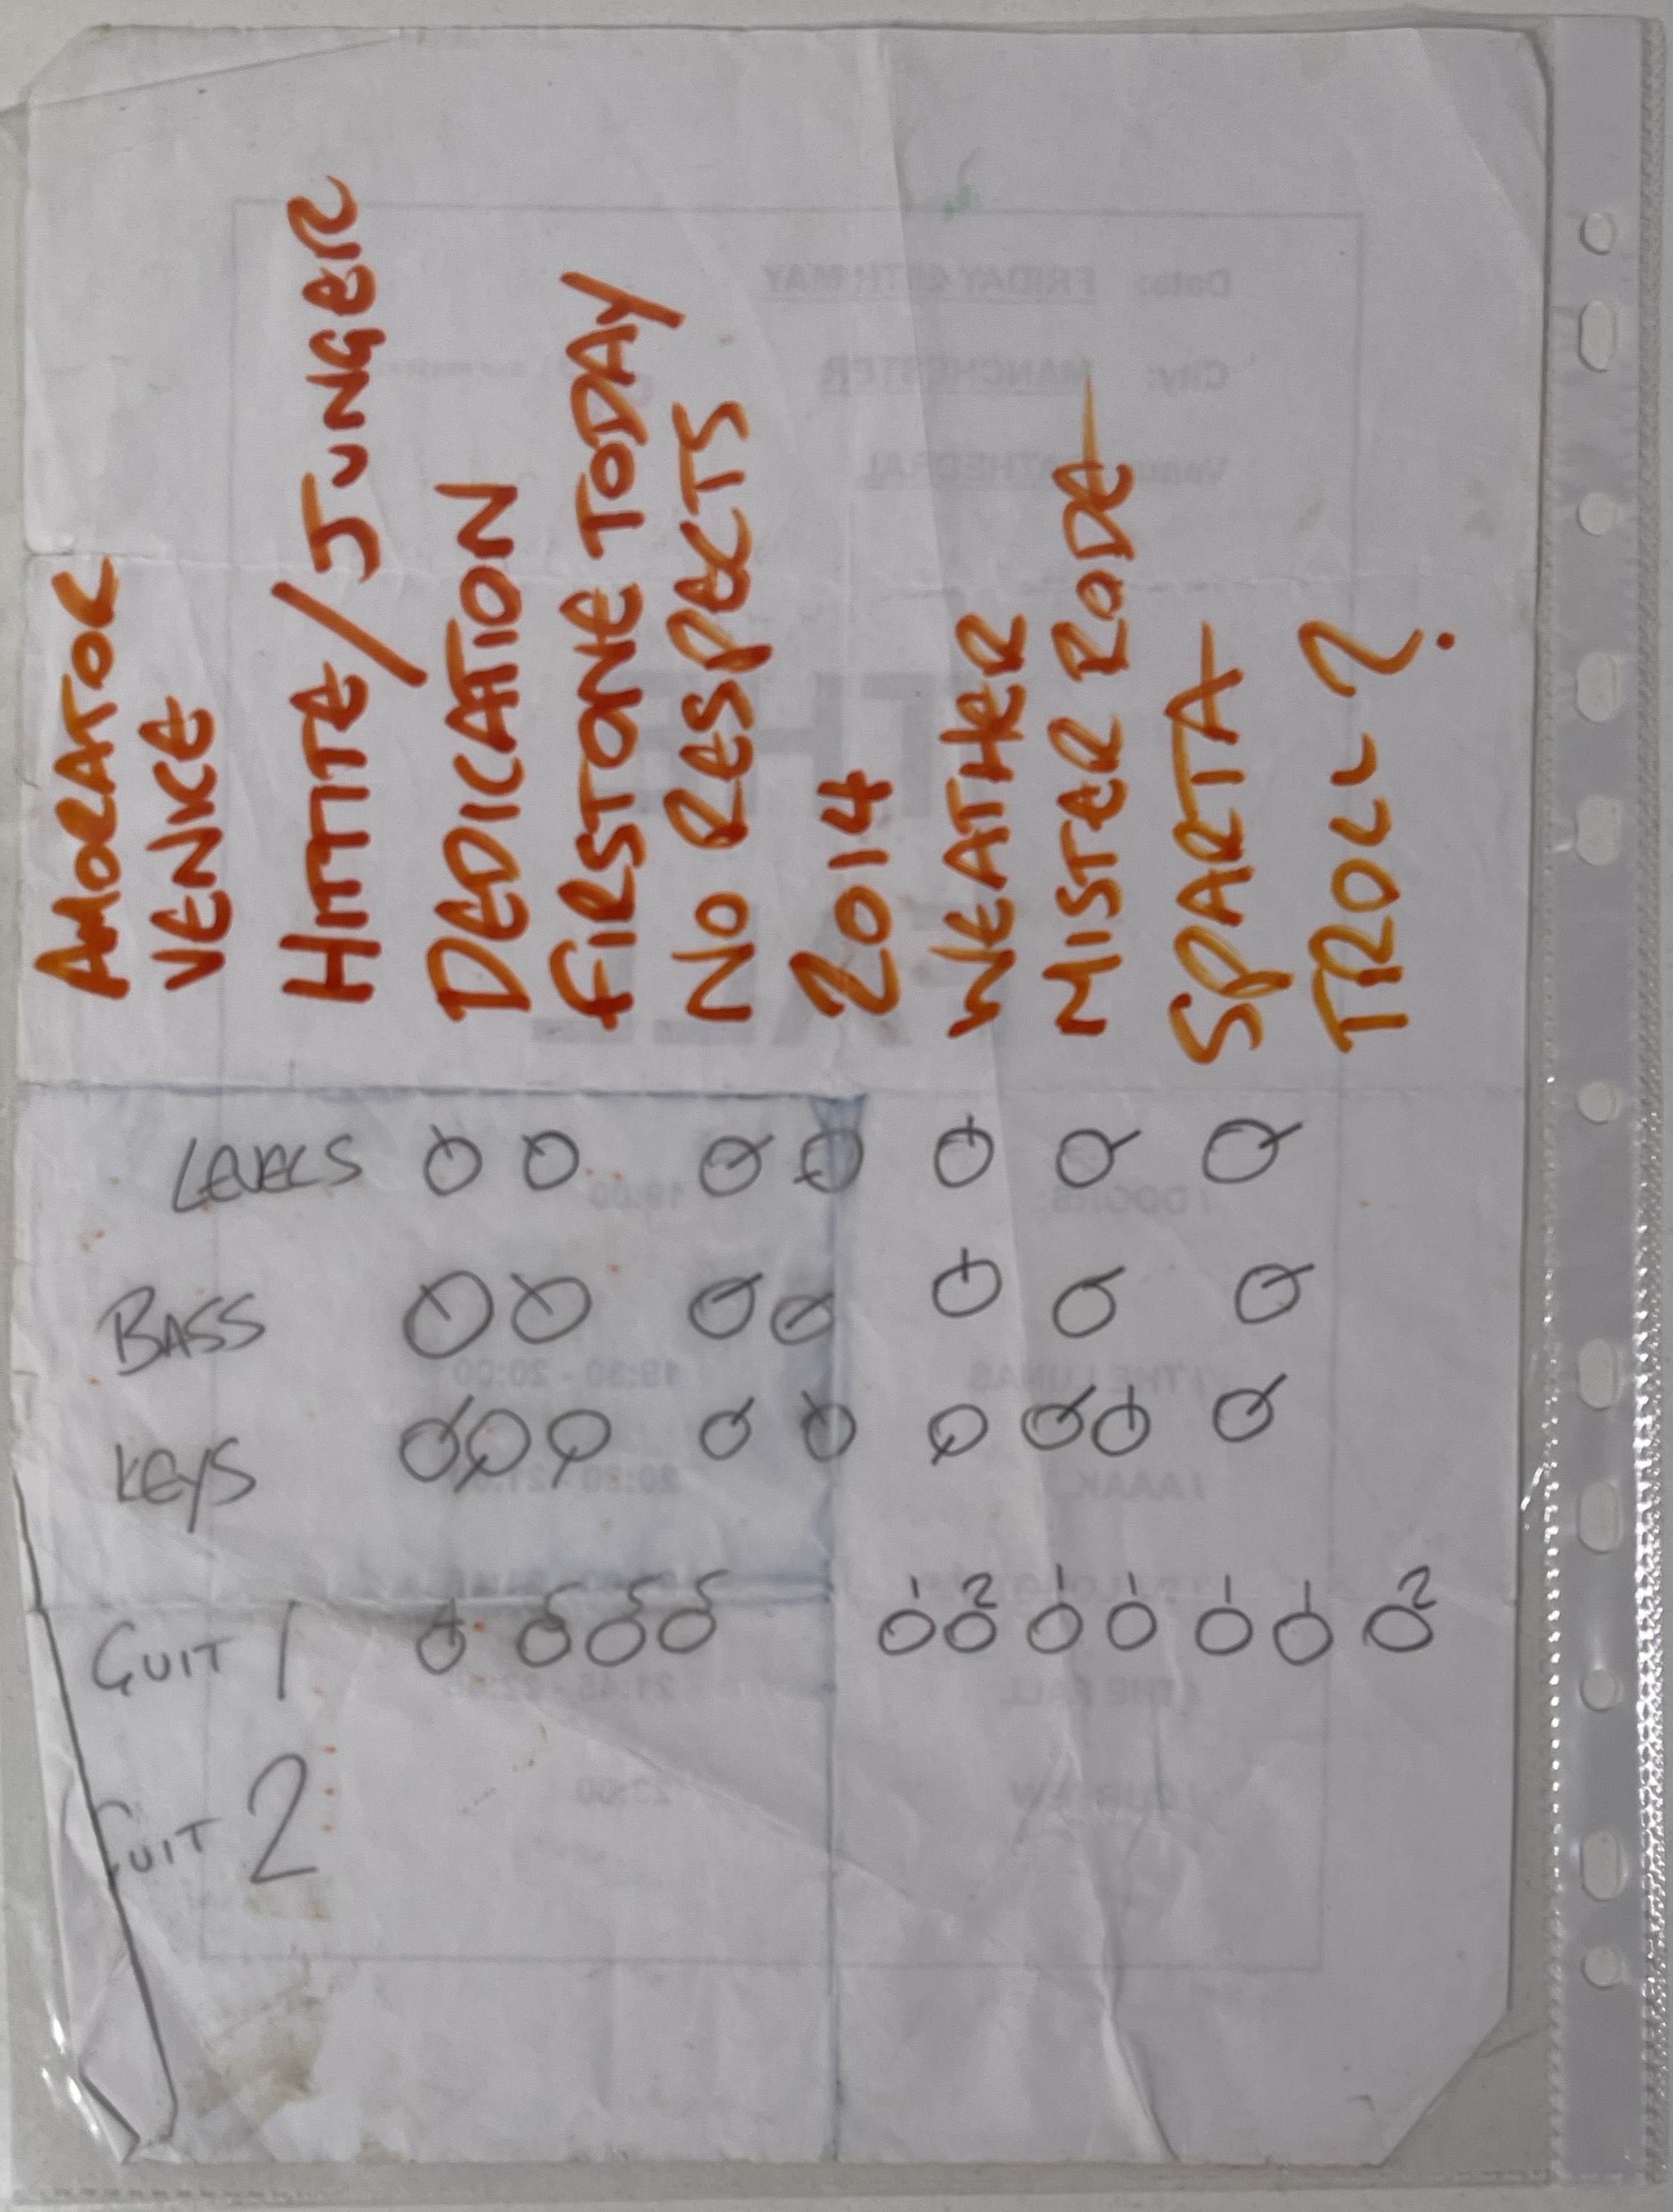 AMORATOR
VENICE
HITTITE/JUNGER
DEDICATION
FIRSTONE TODAY
NO RESPECTS
2014
WEATHER
MISTER RODE
SPARTA
TROLL?
LEVELS
BASS
KEYS
GUIT 1
5 5 5
1 2 1 1 1 1 2
GUIT 2
Date: FRIDAY
MAY
City: MANCHESTER
Venue: CATHEDRAL
THE
FALL
/ DOORS 19:00
/ THE LUNAS 19:30 - 20:00
/ AAAK
/ THE FALL
/ CURFEW